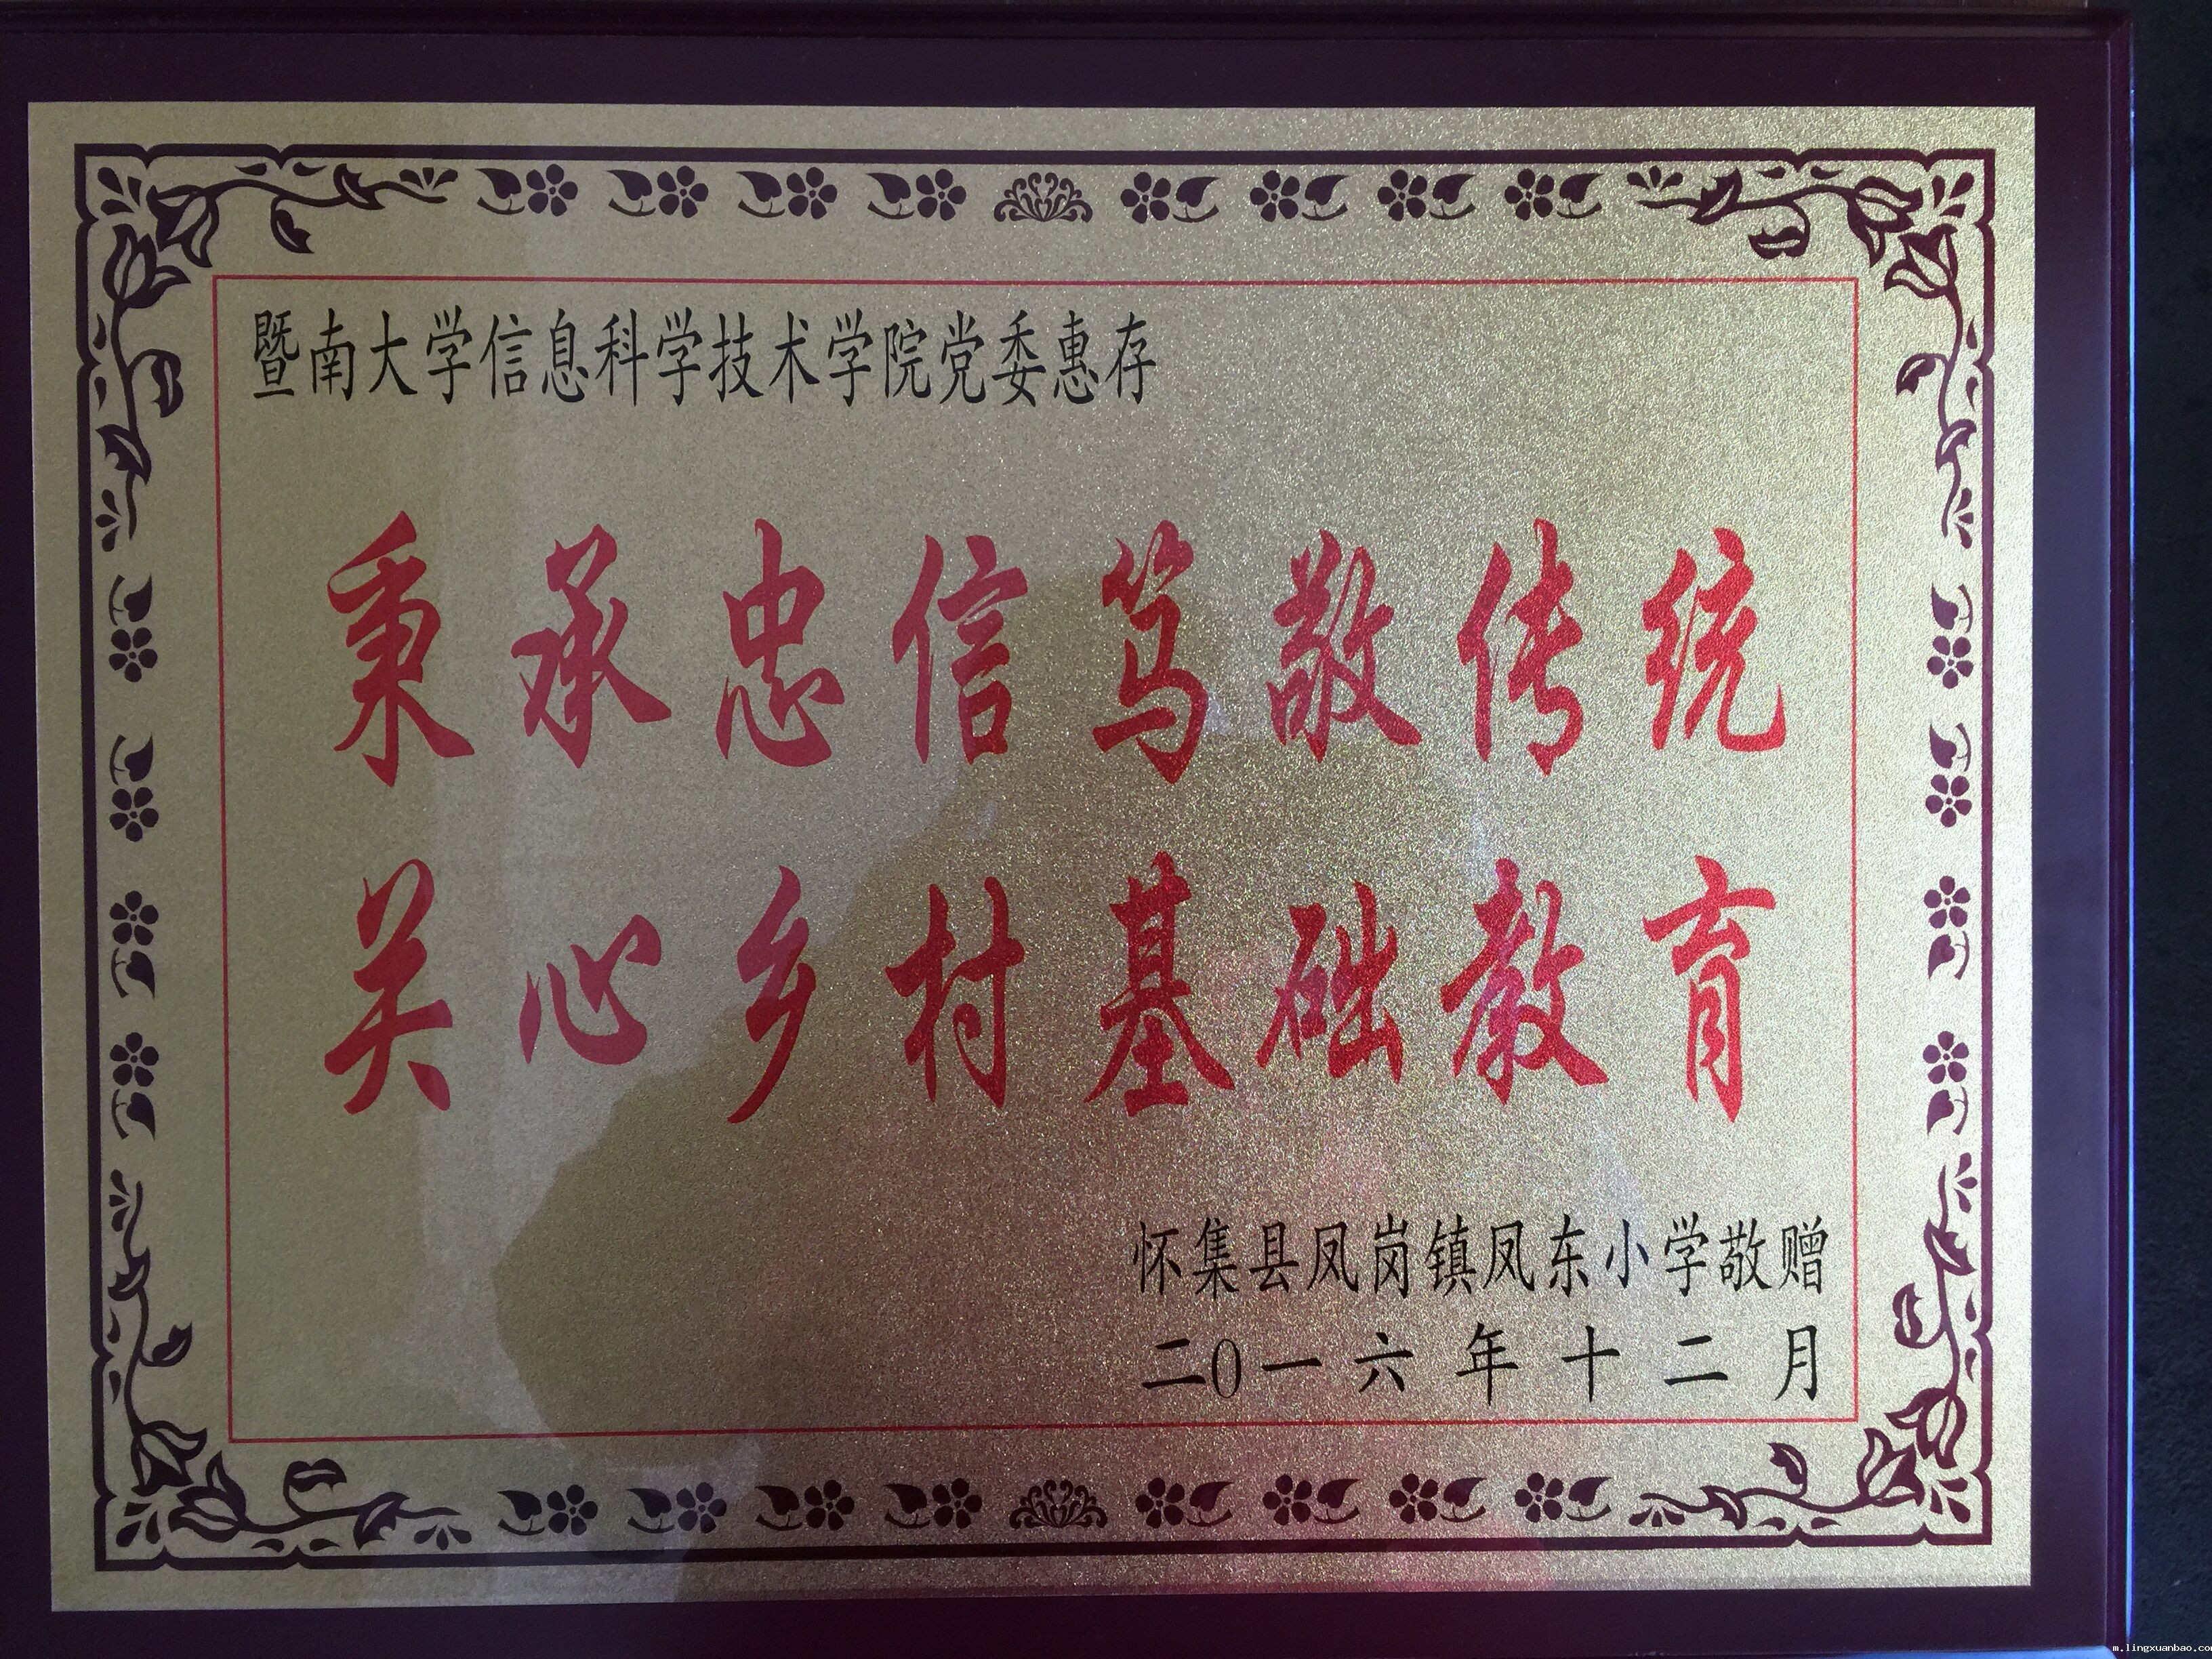 暨南大学信息科学技术学院党委惠存
秉承忠信笃敬传统
关心乡村基础教育
怀集县凤岗镇凤东小学敬赠
二0一六年十二月
m.lingxuanbao.co